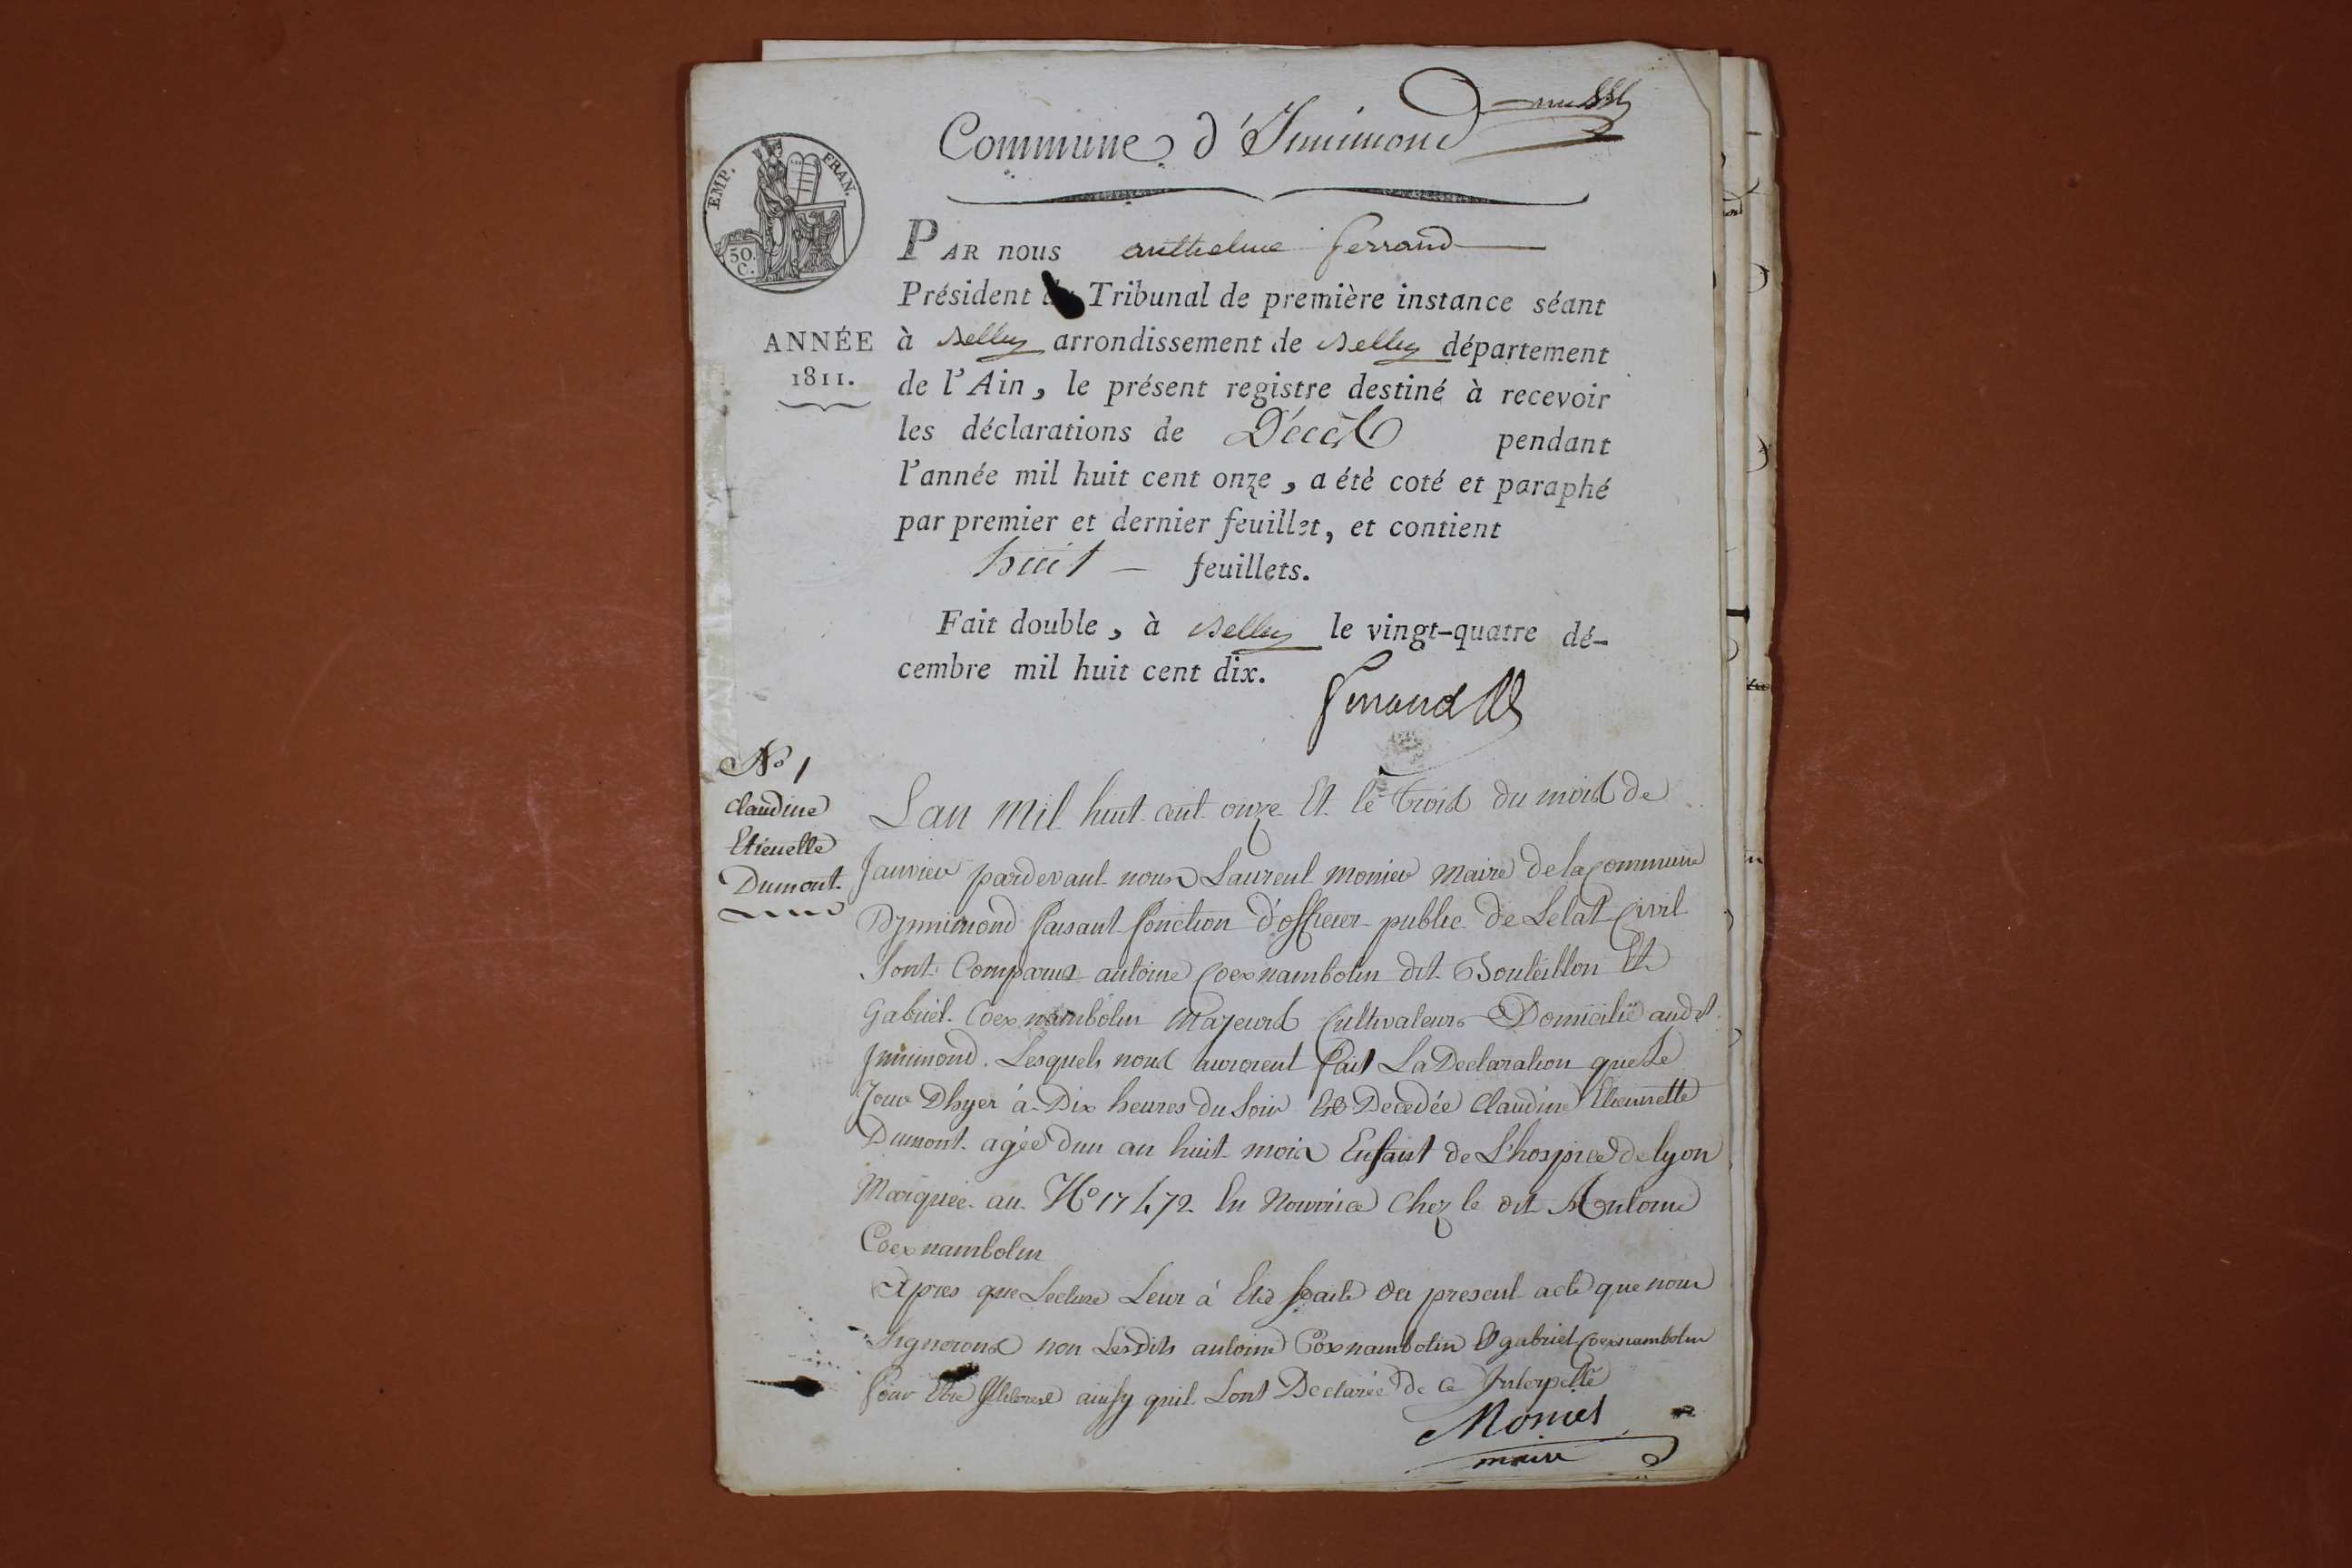 Commune d'Innimond
EMP. FRAN.
50 C.
PAR nous anthelme ferrand
Président du Tribunal de première instance séant
ANNÉE
1811.
à Belley arrondissement de Belley département
de l'Ain, le présent registre destiné à recevoir
les déclarations de Décès pendant
l'année mil huit cent onze, a été coté et paraphé
par premier et dernier feuillet, et contient
huit — feuillets.
Fait double, à Belley le vingt-quatre dé-
cembre mil huit cent dix.
ferrand
No 1
Claudine
Etienette
Dumont.
Lan Mil huit cent onze Et le trois du mois de
Janvier pardevant nous Laurent monier Maire de la Commune
Dynnimond faisant fonction d'officier public de Letat Civil
Sont Comparus antoine Coexnambolin dit Et
Gabriel Coexnambolin Majeurs Cultivateurs Domicilié audit
Innimond. Lesquels nous auroient fait La Declaration que Le
Jour Dhyer à Dix heures du Soir Est Decedée Claudine Etiennette
Dumont agée dun an huit mois Enfant de L'hospice de lyon
Marquée au No 17472 En Nourrice Chez le dit Antoine
Coexnambolin
Apres que Lecture Leur à Eté faite du present acte que nous
Signerons non Lesdits antoine Coxnambolin Et gabriel Coexnambolin
Pour Etre Illiteres ainsy quil Sont Declarée de Ce Interpellé
Monier
maire